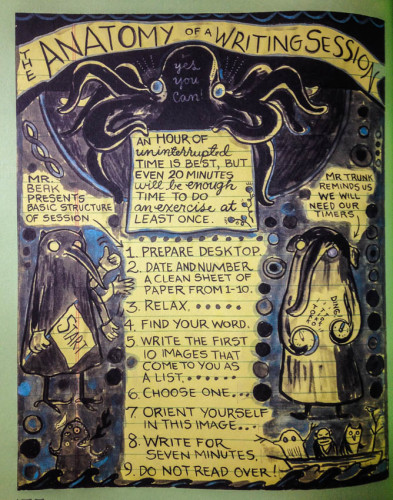 THE ANATOMY OF A WRITING SESSION
yes
you
can!
AN HOUR OF
uninterrupted
TIME IS BEST, BUT
EVEN 20 MINUTES
will be enough
TIME TO DO
an exercise at
LEAST ONCE.
MR.
BERK
PRESENTS
BASIC STRUCTURE
OF SESSION
MR TRUNK
REMINDS US
WE WILL
NEED OUR
TIMERS
1. PREPARE DESKTOP
2. DATE AND NUMBER
A CLEAN SHEET OF
PAPER FROM 1-10.
3. RELAX.....
4. FIND YOUR WORD.
5. WRITE THE FIRST
10 IMAGES THAT
COME TO YOU AS
A LIST.....
6. CHOOSE ONE...
7. ORIENT YOURSELF
IN THIS IMAGE...
8. WRITE FOR
SEVEN MINUTES.
9. DO NOT READ OVER!
START
DING!